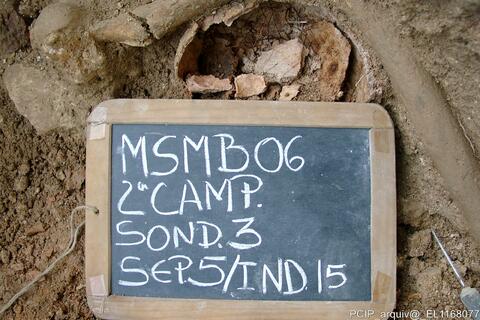 MSMB06
2ª CAMP.
SOND. 3
SEP.5/IND.15
PCIP_arquiv@_EL1168077